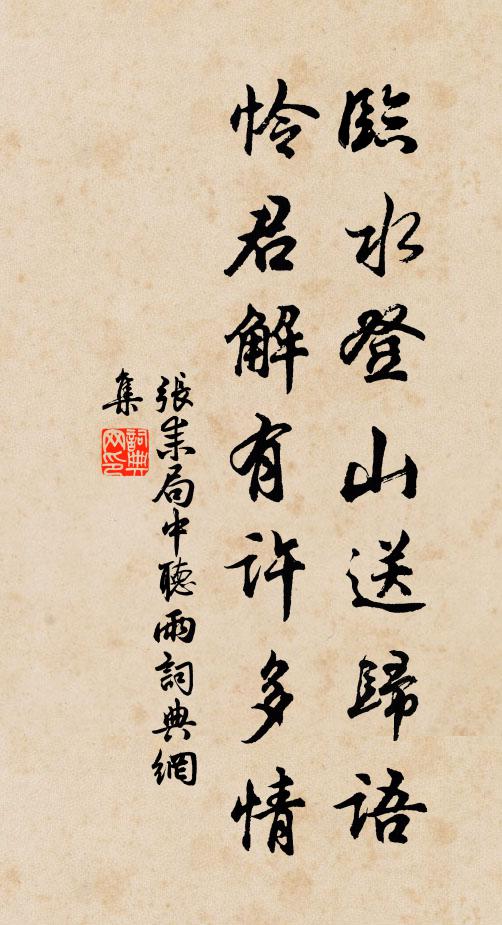 臨水登山送歸語
憐君解有許多情
張耒局中聽雨詞典網
集
詞典網印